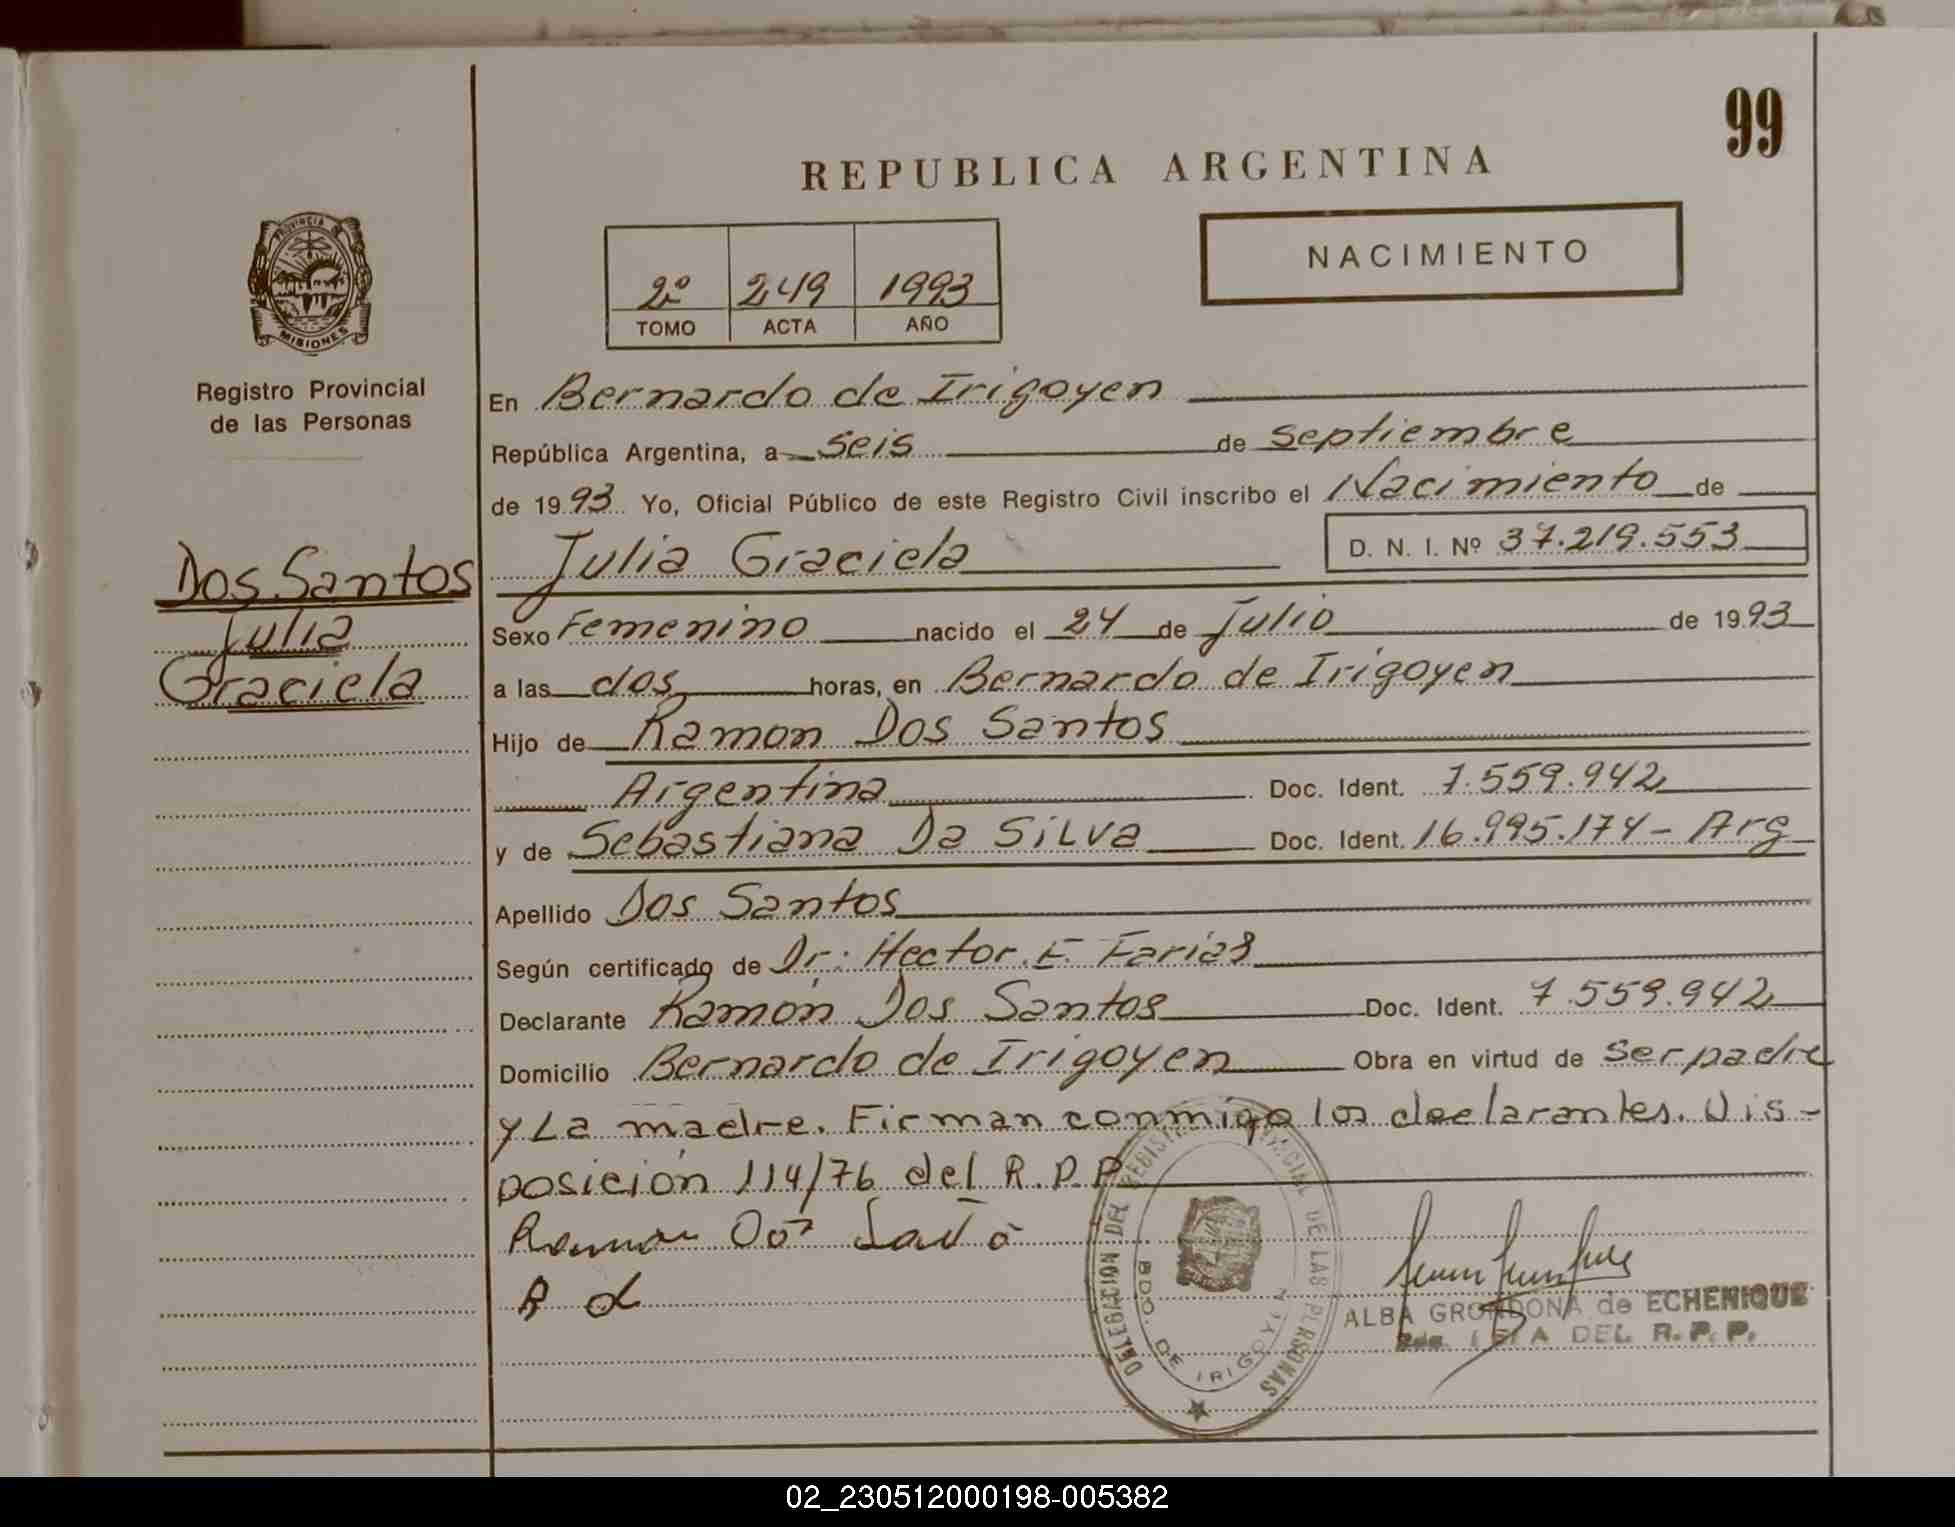 99
REPUBLICA ARGENTINA
PROVINCIA DE
MISIONES
Registro Provincial
de las Personas
NACIMIENTO
2º 249 1993
TOMO ACTA AÑO
En Bernardo de Irigoyen
República Argentina, a seis de septiembre
de 1993 Yo, Oficial Público de este Registro Civil inscribo el Nacimiento de
Julia Graciela D. N. I. Nº 37.219.553
Dos Santos
Julia
Graciela
Sexo Femenino nacido el 24 de Julio de 1993
a las dos horas, en Bernardo de Irigoyen
Hijo de Ramon Dos Santos
Argentina Doc. Ident. 7.559.942
y de Sebastiana Da Silva Doc. Ident. 16.995.174 - Arg
Apellido Dos Santos
Según certificado de Dr: Hector. E. Farias
Declarante Ramón Dos Santos Doc. Ident. 7.559.942
Domicilio Bernardo de Irigoyen Obra en virtud de ser padre
y La madre. Firman conmigo los declarantes. Dis-
posición 114/76 del R.P.P
Ramon Dos
DELEGACION DEL REGISTRO PROVINCIAL DE LAS PERSONAS
BDO. DE IRIGOYEN
ALBA GRONDONA de ECHENIQUE
DEL R. P. P.
02_230512000198-005382